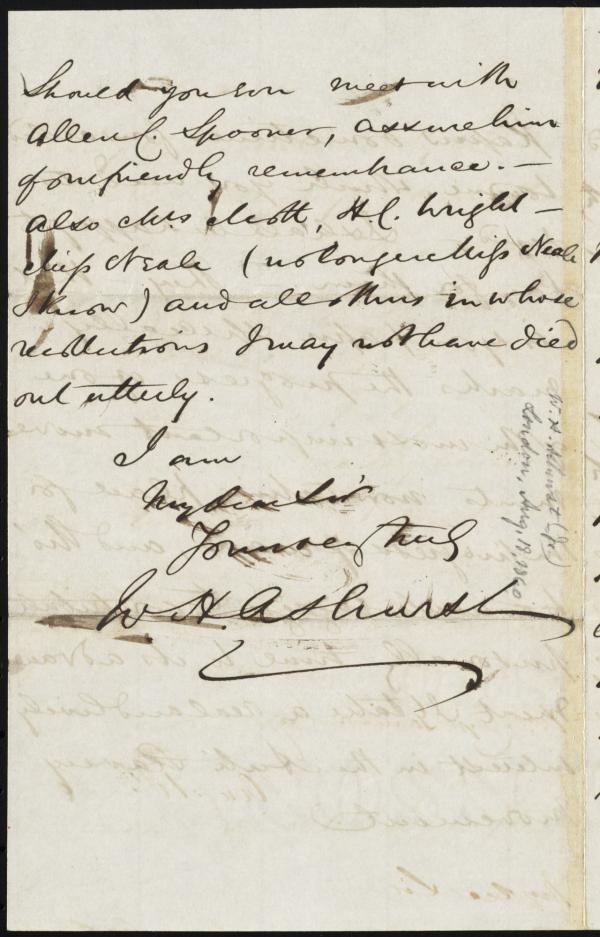 Should you soon meet with
Allen C. Spooner, assure him
of our friendly remembrance. —
Also Mrs Mott, H C. Wright —
Miss Neale (no longer Miss Neale
I know) and all others in whose
recollections I may not have died
out utterly.
I am
My dear Sir
Yours very truly
W H. Ashurst
W. H. Ashurst (Jr.)
London, Aug. 19, 1860